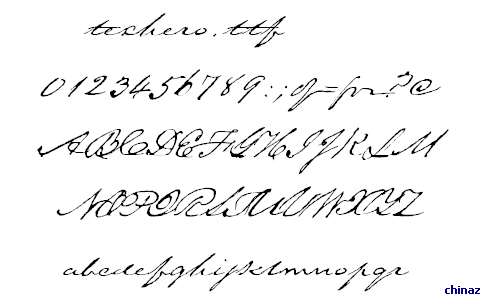 texhero.ttf
0123456789:;of=for?@
ABCDEFGHIJKLM
NOPQRSTUVWXYZ
abcdefghijklmnopqr
chinaz